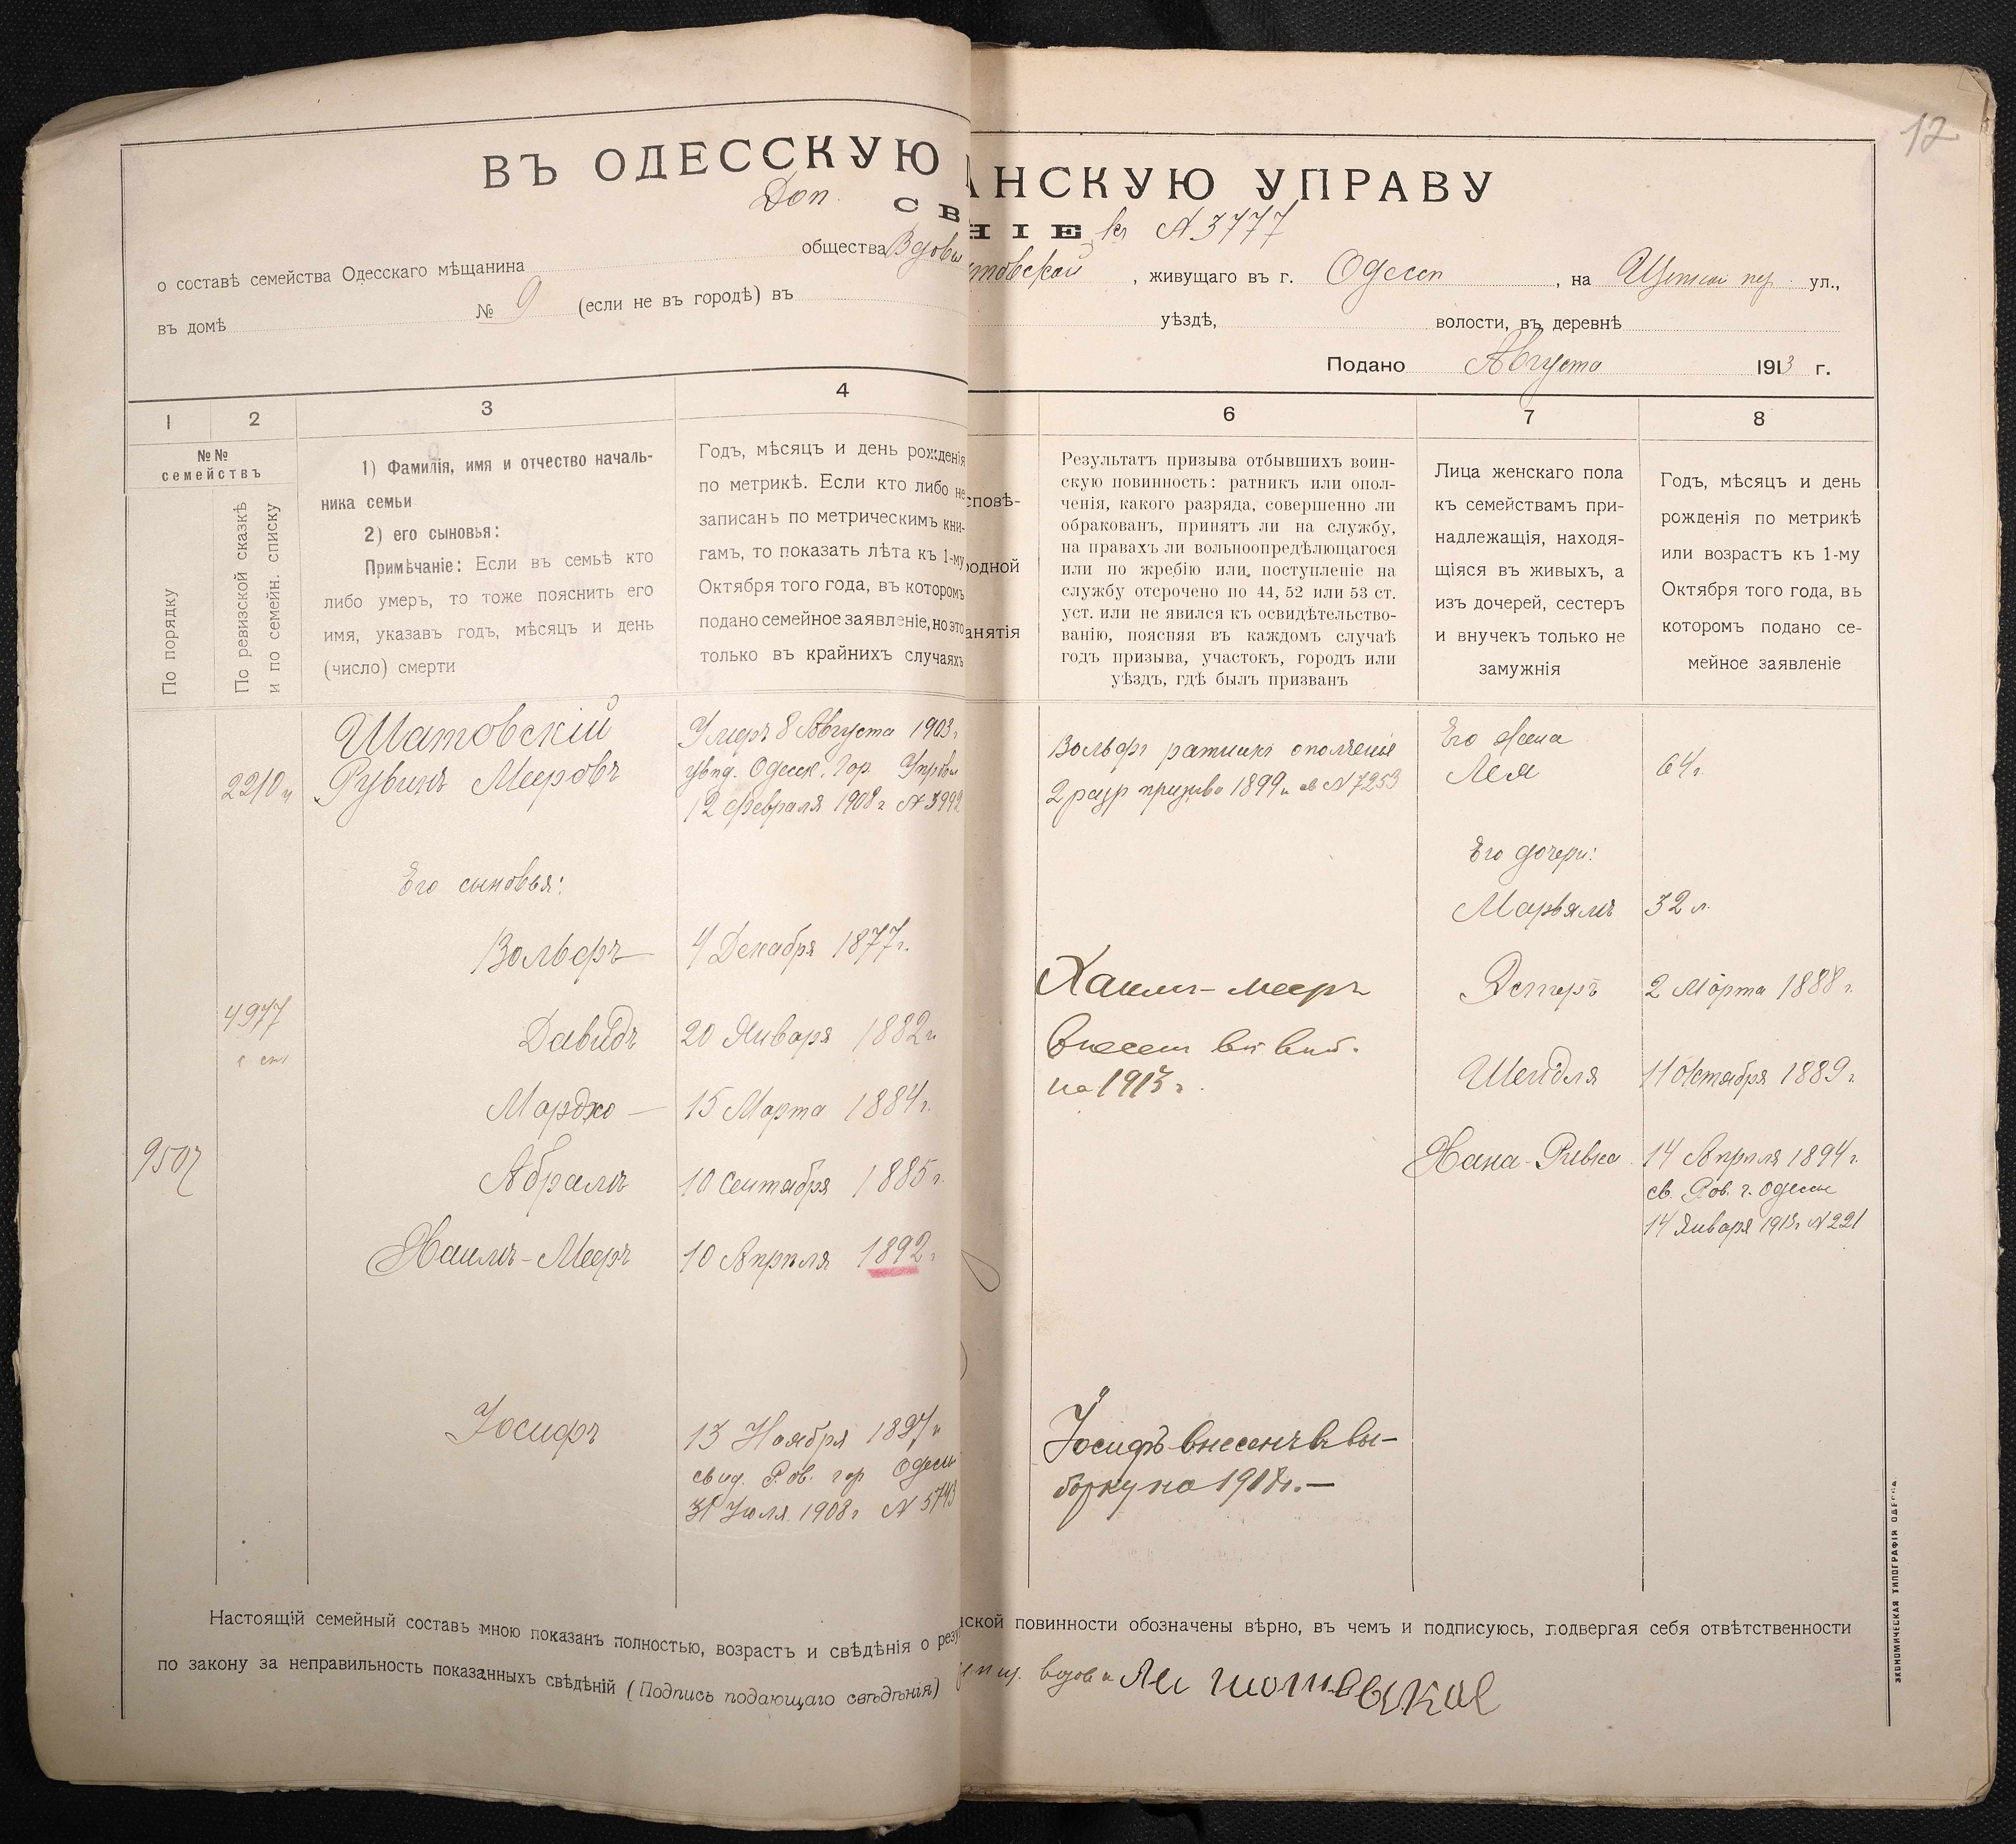 12
ВЪ ОДЕССКУЮ
АНСКУЮ УПРАВУ
Доп.
СВ
НІЕ къ N 3777
о составѣ семейства Одесскаго мѣщанина
общества Вдовы
товской, живущаго въ г. Одессѣ, на Щепной пер. ул.,
въ домѣ № 9 (если не въ городѣ) въ
уѣздѣ, волости, въ деревнѣ
Подано Августа 1913 г.
1 2 3 4
6 7 8
№№
семействъ
По порядку
По ревизской сказкѣ
и по семейн. списку
1) Фамилія, имя и отчество началь-
ника семьи
2) его сыновья:
Примѣчаніе: Если въ семьѣ кто
либо умеръ, то тоже пояснить его
имя, указавъ годъ, мѣсяцъ и день
(число) смерти
Годъ, мѣсяцъ и день рожденія
по метрикѣ. Если кто либо не
записанъ по метрическимъ кни-
гамъ, то показать лѣта къ 1-му
Октября того года, въ которомъ
подано семейное заявленіе, но это
только въ крайнихъ случаяхъ
сповѣ-
родной
анятія
Результатъ призыва отбывшихъ воин-
скую повинность: ратникъ или опол-
ченія, какого разряда, совершенно ли
обракованъ, принятъ ли на службу,
на правахъ ли вольноопредѣлющагося
или по жребію или, поступленіе на
службу отсрочено по 44, 52 или 53 ст.
уст. или не явился къ освидѣтельство-
ванію, поясняя въ каждомъ случаѣ
годъ призыва, участокъ, городъ или
уѣздъ, гдѣ былъ призванъ
Лица женскаго пола
къ семействамъ при-
надлежащія, находя-
щіяся въ живыхъ, а
изъ дочерей, сестеръ
и внучекъ только не
замужнія
Годъ, мѣсяцъ и день
рожденія по метрикѣ
или возрастъ къ 1-му
Октября того года, въ
которомъ подано се-
мейное заявленіе
Шатовскій
2210
Рувинъ Мееровъ
Умеръ 8 Августа 1903 г
увѣд. Одесск. Гор. Управы
12 Февраля 1908 г N 3992
Вольфъ ратникъ ополченія
2 разр призыва 1899 г N 7253
Его жена
Лея
64 г.
Его сыновья:
Его дочери:
Марьямъ 32 л.
Вольфъ — 4 Декабря 1877 г.
Хаимъ-Мееръ
внесенъ въ выб.
на 1913 г.
Эстеръ 2 Марта 1888 г.
4977
Давидъ 20 Января 1882 г.
Шейдля 11 Октября 1889 г.
Мордко — 15 Марта 1884 г.
9507
Абрамъ 10 Сентября 1885 г.
Хана-Ривка 14 Апрѣля 1894 г.
св. Рав. г. Одессы
14 Января 1913 г N 221
Хаимъ-Мееръ 10 Апрѣля 1892 г
Іосифъ
13 Ноября 1897 г
свид. Рав. гор Одессы
31 Іюля 1908 г N 5743
Іосифъ внесенъ въ вы-
борку на 1918 г. —
Настоящій семейный составъ мною показанъ полностью, возрастъ и свѣдѣнія о резу
нской повинности обозначены вѣрно, въ чемъ и подписуюсь, подвергая себя отвѣтственности
по закону за неправильность показанныхъ свѣдѣній (Подпись подающаго свѣдѣнія)
вдова Лея Шатовская
ЭКОНОМИЧЕСКАЯ ТИПОГРАФІЯ ОДЕССА.